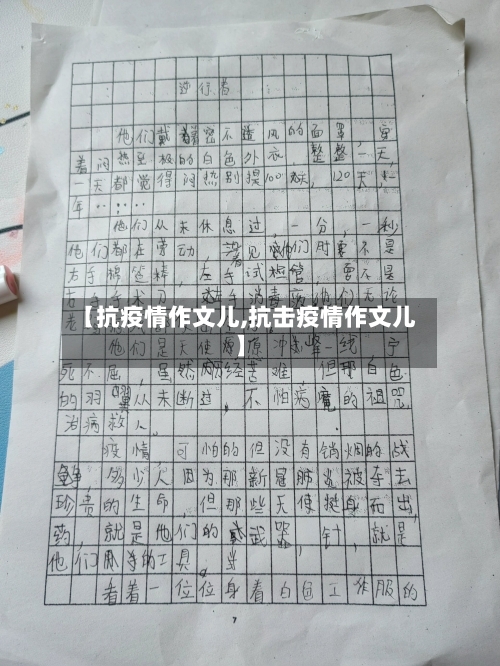 逆行者
他们戴着密不透风的面罩，穿
着闷热至极的白色外衣，整整一天，
一天都觉得闷热别提100天，120天，一
年……
他们从未休息过，一分，一秒
他们都在劳动，见他们时要不是
右手棉签，左手试管，要不是
右手手术刀，左手消毒他们无论
【抗疫情作文儿,抗击疫情作文儿
】
他们是天使原冲一线，宁
死不屈，虽然历经苦难，但那白色
的羽翼从未断过，不怕病魔的祖咒，
治病救人。
疫情，可怕的但没有销烟的战
多少人因为那新冠肺炎被夺去
珍贵的生命，但那些天使挺身而出，
药，就是他们的武器，针，就是
他们的工具，
看着一位位身着白色工作服的
7